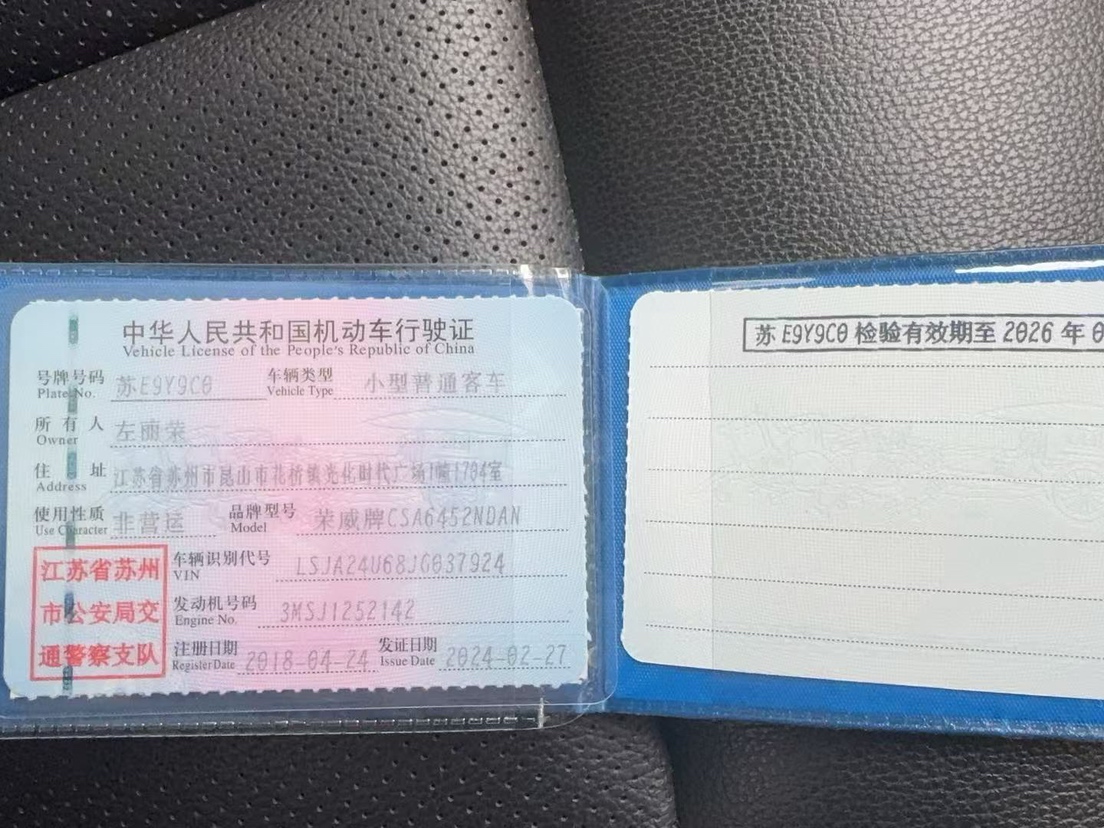 中华人民共和国机动车行驶证
Vehicle License of the People's Republic of China
号牌号码 苏E9Y9C0 车辆类型 小型普通客车
Plate No. Vehicle Type
所有人 左丽荣
Owner
住址 江苏省苏州市昆山市花桥镇光化时代广场1幢1704室
Address
使用性质 非营运 品牌型号 荣威牌CSA6452NDAN
Use Character Model
江苏省苏州
市公安局交
通警察支队
车辆识别代号 LSJA24U68JG037924
VIN
发动机号码 3MSJ1252142
Engine No.
注册日期 2018-04-24 发证日期 2024-02-27
Register Date Issue Date
苏E9Y9C0 检验有效期至 2026 年 0